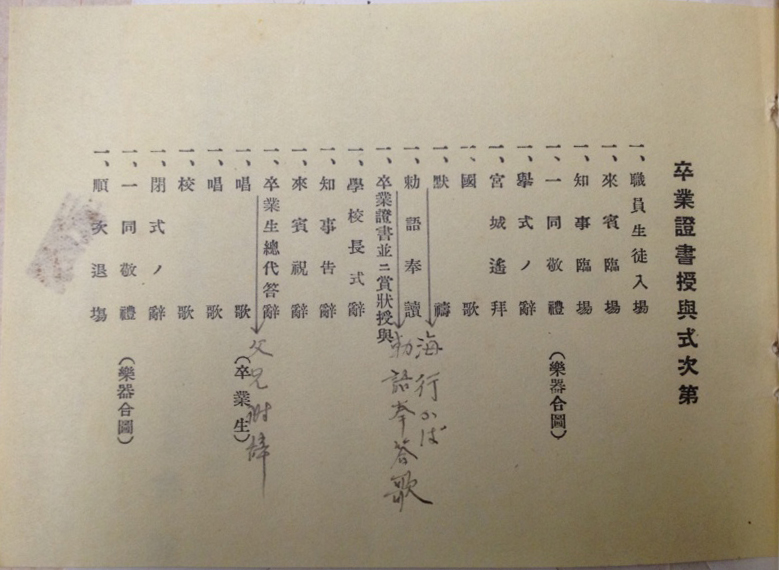 卒業證書授與式次第
一、職員生徒入場
一、來賓臨場
一、知事臨場
一、一同敬禮（樂器合圖）
一、擧式ノ辭
一、宮城遙拜
一、國歌
一、默禱
海行かば
一、勅語奉讀
勅語奉答歌
一、卒業證書並ニ賞狀授與
一、學校長式辭
一、知事告辭
一、來賓祝辭
一、卒業生總代答辭
父兄謝辞
一、唱歌（卒業生）
一、唱歌
一、校歌
一、閉式ノ辭
一、一同敬禮（樂器合圖）
一、順次退場